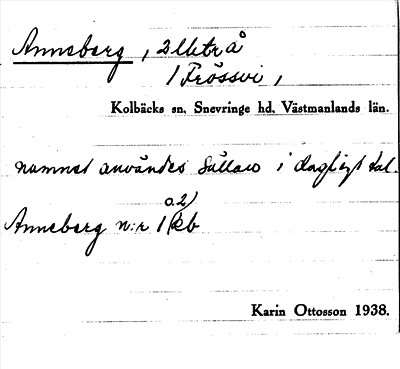 Anneberg, 2 lht å
/ Frössvi,
Kolbäcks sn. Snevringe hd. Västmanlands län.
namnet användes sällan i dagligt tal.
o. 2)
Anneberg n:r 1 kb
Karin Ottosson 1938.